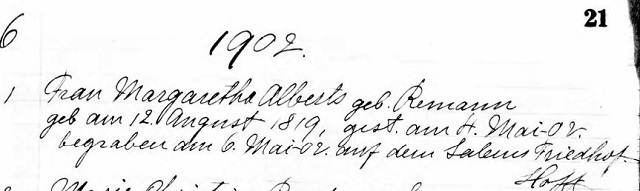 21
6
1902.
1 Frau Margaretha Alberts geb. Remann
geb am 12. August 1819, gest. am 4. Mai-02.
begraben am 6. Mai-02. auf dem Salems Friedhof.
Hoff